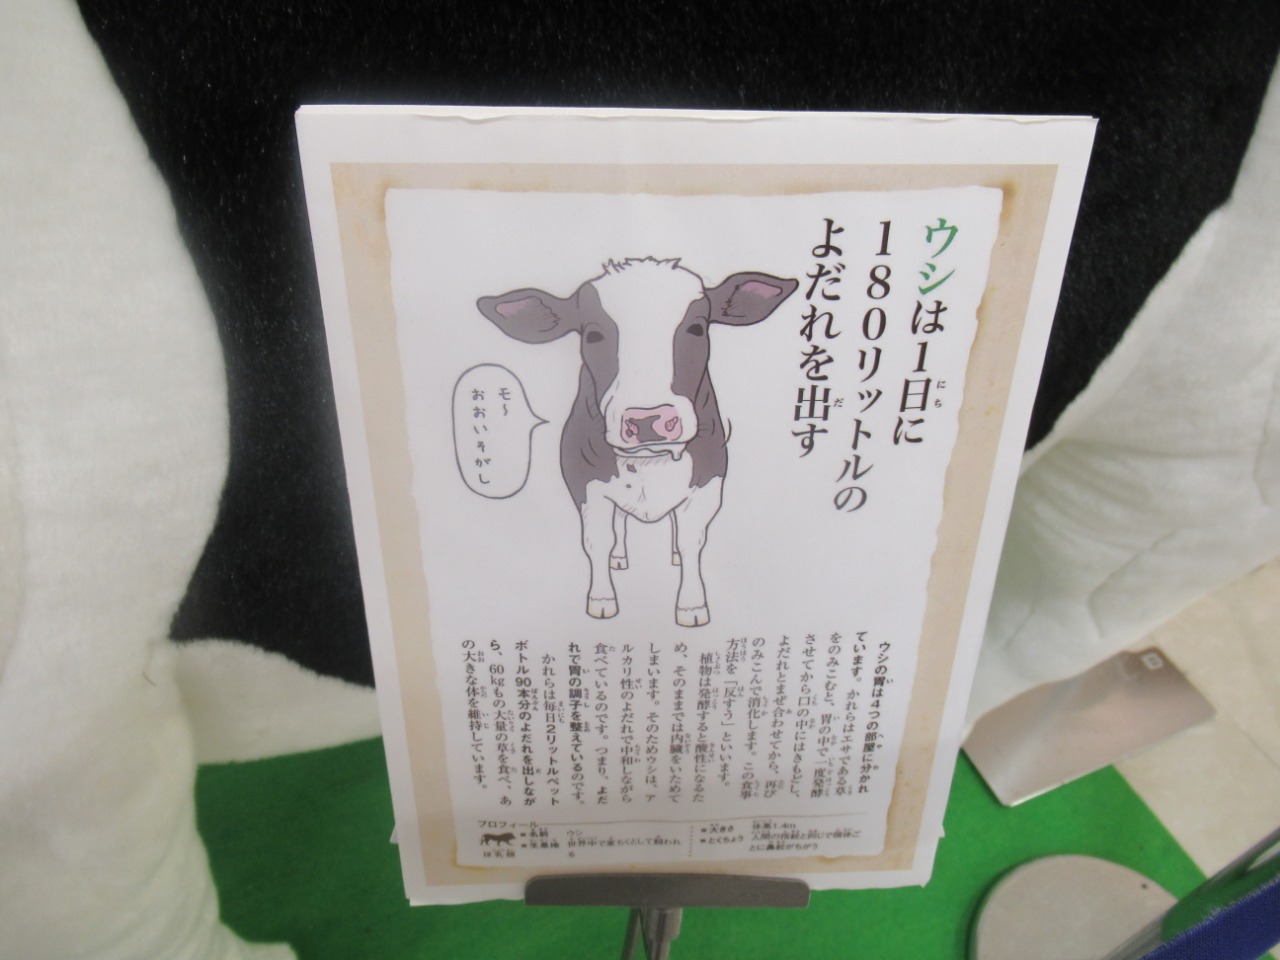 ウシは1日に
180リットルの
よだれを出す
モ〜
おおいそがし
ウシの胃は4つの部屋に分かれ
ています。かれらはエサである草
をのみこむと、胃の中で一度発酵
させてから口の中にはきもどし、
よだれとまぜ合わせてから、再び
のみこんで消化します。この食事
方法を「反すう」といいます。
植物は発酵すると酸性になるた
め、そのままでは内臓をいためて
しまいます。そのためウシは、ア
ルカリ性のよだれで中和しながら
食べているのです。つまり、よだ
れで胃の調子を整えているのです。
かれらは毎日2リットルペット
ボトル90本分のよだれを出しなが
ら、60kgもの大量の草を食べ、あ
の大きな体を維持しています。
プロフィール
ほ乳類
■名前 ウシ
■生息地 世界中で家ちくとして飼われ
る
■大きさ 体高1.4m
■とくちょう 人間の指紋と同じで個体ご
とに鼻紋がちがう